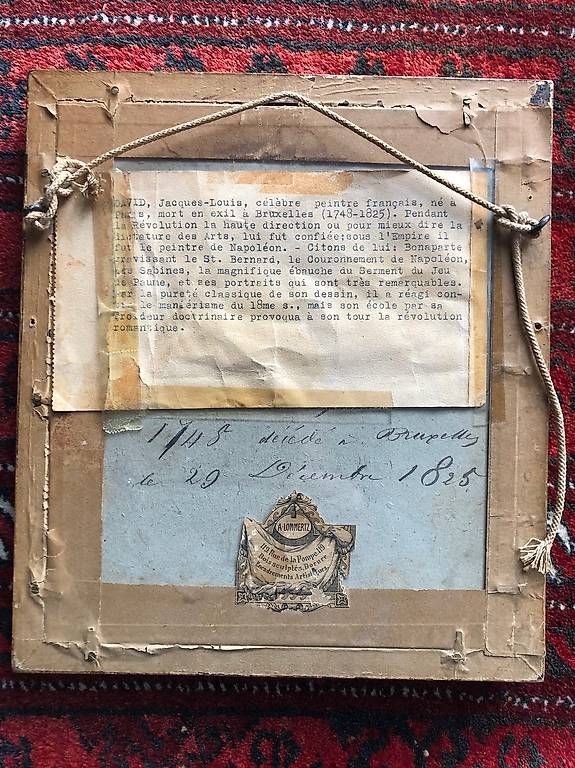 DAVID, Jacques-Louis, célèbre peintre français, né à
Paris, mort en exil à Bruxelles (1748-1825). Pendant
la Révolution la haute direction ou pour mieux dire la
dictature des Arts, lui fut confiée;sous l'Empire il
fut le peintre de Napoléon. - Citons de lui: Bonaparte
gravissant le St. Bernard, le Couronnement de Napoléon,
les Sabines, la magnifique ébauche du Serment du Jeu
de Paune, et ses portraits qui sont très remarquables.
Par la pureté classique de son dessin, il a réagi con-
tre le maniérisme du 18me s., mais son école par sa
froideur doctrinaire provoqua à son tour la révolution
romantique.
1748 décédé à Bruxelles
le 29 Décembre 1825
A. LOMMERTZ
Rue de la Pompe
Bois sculptés, Dorure
Encadrements Artistiques